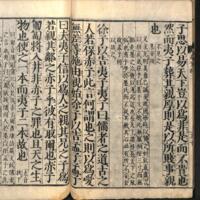 子思以易天下豈以為非是而不貴也
然而夷子葬其親厚則是以所賤事親
徐子以告夷子夷子曰儒者之道古之
人若保赤子此言何謂也之則以為愛
無差等施由親始徐子以告孟子孟子
曰夫夷子信以為人之親其兄之子為
若親其鄰之赤子乎彼有取爾也赤子
匍匐將入井非赤子之罪也且天之生
物也使之一本而夷子二本故也